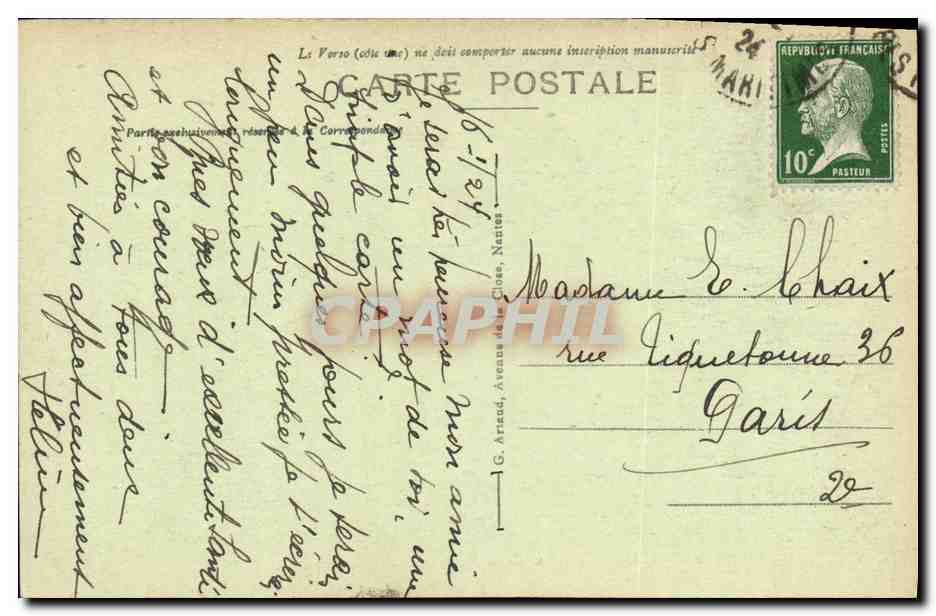 Le Verso (côté vue) ne doit comporter aucune inscription manuscrite
CARTE POSTALE
Partie exclusivement réservée à la Correspondance
REPVBLIQVE FRANÇAISE
10c
POSTES
PASTEUR
24
MARITIME
G. Artaud, Avenue de la Close, Nantes
16-1/24
Je serai très heureuse mon amie
d'avoir un mot de toi, une
simple carte !
Dans quelques jours je serai
un peu moins pressée je t'écrirai
longuement
Mes vœux d'excellente santé
et bon courage
Amitiés à tous deux
et bien affectueusement
Hélène
Madame E. Chaix
rue Tiquetonne 36
Paris
2e
CPAPHIL